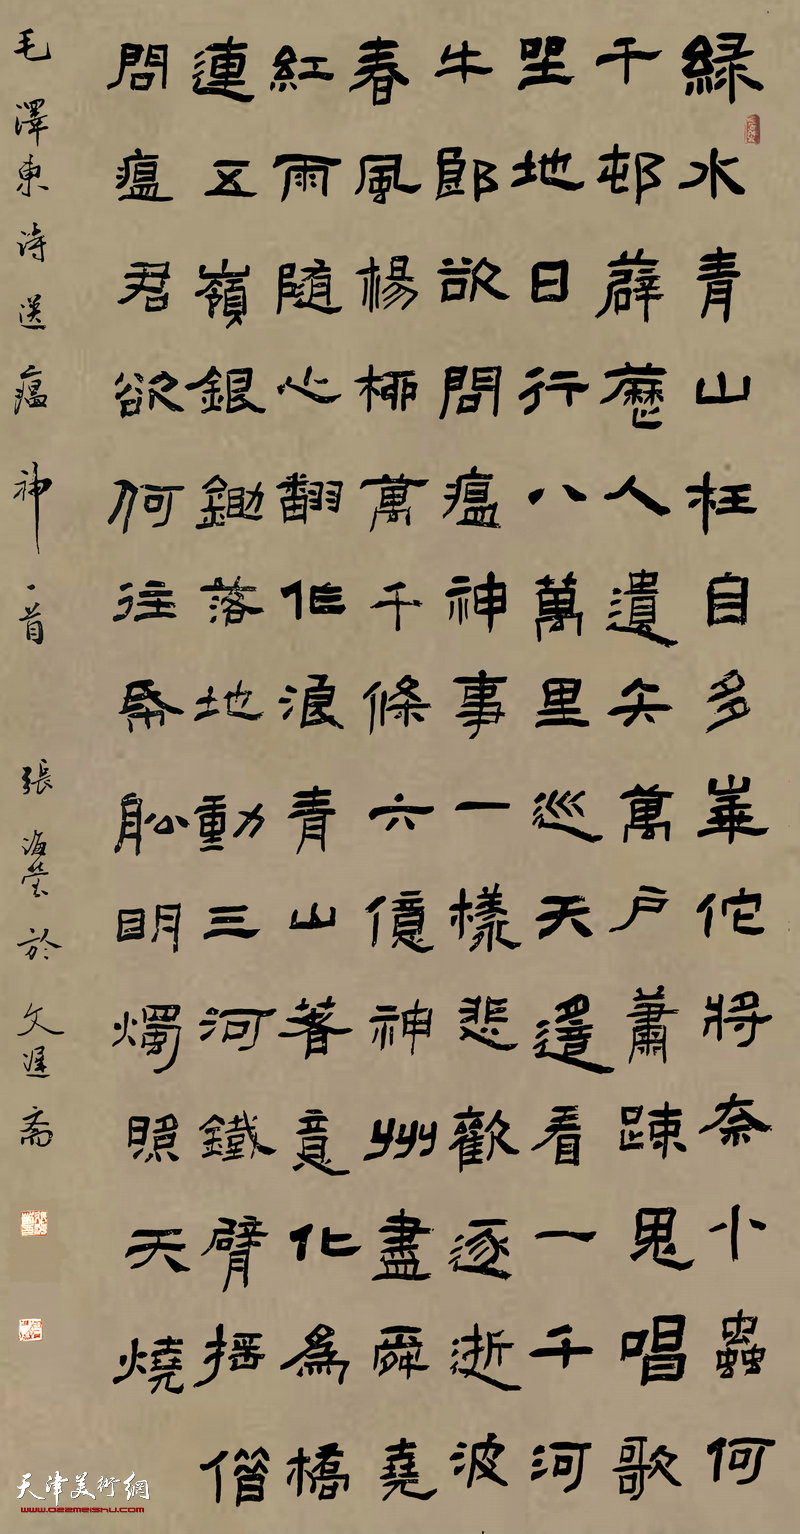 綠水青山枉自多崋佗將奈小蟲何
千邨薜藶人遺矢萬户蕭踈鬼唱歌
坐地日行八萬里巡天遙看一千河
牛郎欲問瘟神事一樣悲歡逐逝波
春風楊柳萬千條六億神州盡舜堯
紅雨隨心翻作浪青山著意化為橋
連五嶺銀鋤落地動三河鐵臂搖借
問瘟君欲何往帋船明燭照天燒
毛澤東詩送瘟神一首 張海瑩於文遲斋
天津美術網
www.022meishu.com